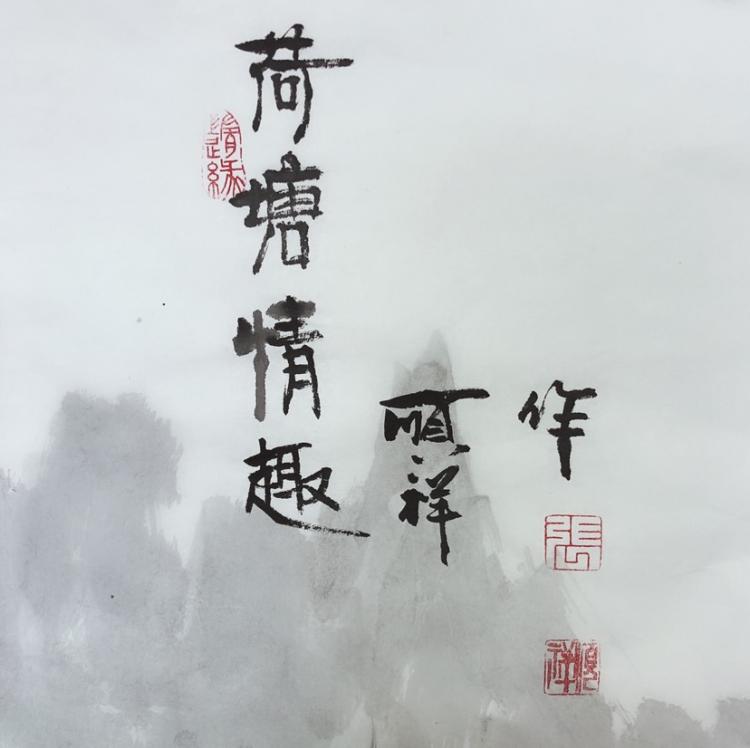 荷塘情趣
隨緣
順祥
作
張
順祥